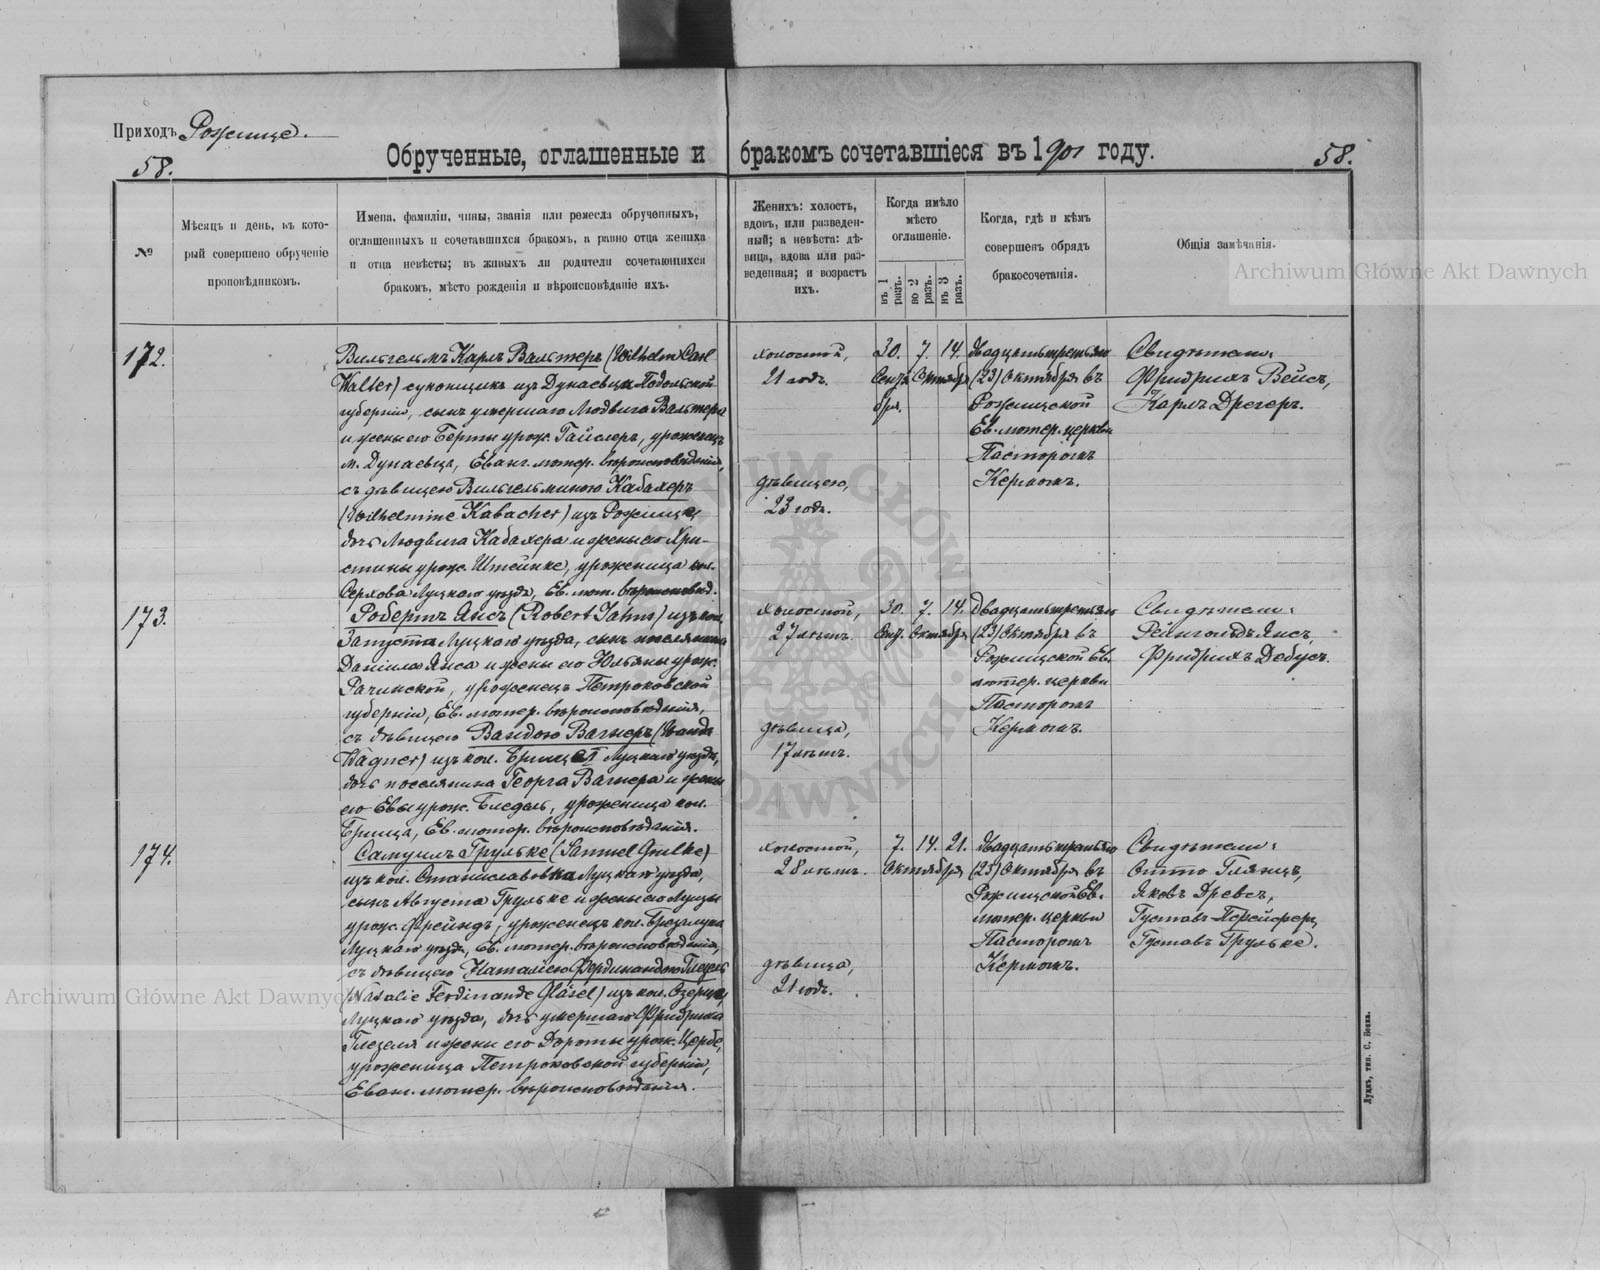 Приходъ Рожище.
58.
Обрученные, оглашенные и бракомъ сочетавшіеся въ 1901 году.
58.
№
Мѣсяцъ и день, въ кото-
рый совершено обрученіе
проповѣдникомъ.
Имена, фамиліи, чины, званія или ремесла обрученныхъ,
оглашенныхъ и сочетавшихся бракомъ, а равно отца жениха
и отца невѣсты; въ живыхъ ли родители сочетающихся
бракомъ, мѣсто рожденія и вѣроисповѣданіе ихъ.
Женихъ: холостъ,
вдовъ, или разведен-
ный; а невѣста: дѣ-
вица, вдова или раз-
веденная; и возрастъ
ихъ.
Когда имѣло
мѣсто
оглашеніе.
въ 1 разъ.
во 2 разъ.
въ 3 разъ.
Когда, гдѣ и кѣмъ
совершенъ обрядъ
бракосочетанія.
Общія замѣчанія.
172.
Вильгельмъ Карлъ Вальтеръ (Wilhelm Carl
Walter) суконщикъ изъ Дунаевца Подольской
губерніи, сынъ умершаго Людвига Вальтера
и жены его Берты урож. Гайслеръ, уроженецъ
м. Дунаевца, Еванг. лютер. вѣроисповѣданія,
съ дѣвицею Вильгельминою Кабахеръ
(Wilhelmine Kabacher) изъ Рожищъ,
дочь Людвига Кабахера и жены его Хри-
стины урож. Штейнке, уроженица кол.
Серхова Луцкаго уѣзда, Ев. лют. вѣроисповѣд.
холостой,
21 годъ.
дѣвицею,
23 годъ.
30.
7.
14.
Сентя-
бря.
Октября
Двадцать третьяго
(23) Октября въ
Рожищской
Ев. лютер. церкви
Пасторомъ
Кермомъ.
Свидѣтели:
Фридрихъ Вейсъ,
Карлъ Дрегеръ.
173.
Робертъ Янсъ (Robert Jahns) изъ кол.
Запуста Луцкаго уѣзда, сынъ поселянина
Даніила Янса и жены его Юльяны урож.
Рачинской, уроженецъ Петроковской
губерніи, Ев. лютер. вѣроисповѣданія,
съ дѣвицею Вандою Вагнеръ (Wanda
Wagner) изъ кол. Луцкаго уѣзда,
дочь поселянина Георга Вагнера и жены
его Евы урож. Бледель, уроженица кол.
Ев. лютер. вѣроисповѣданія.
холостой,
27 лѣтъ.
дѣвица,
17 лѣтъ.
30.
7.
14.
Сент.
Октября
Двадцать третьяго
(23) Октября въ
Рожищской Ев.
лютер. церкви
Пасторомъ
Кермомъ.
Свидѣтели:
Рейнгольдъ Янсъ,
Фридрихъ Добусъ.
174.
Самуилъ Грульке (Samuel Grulke)
изъ кол. Станиславовка Луцкаго уѣзда,
сынъ Августа Грульке и жены его Луизы
урож. Фрейндъ, уроженецъ кол.
Луцкаго уѣзда, Ев. лютер. вѣроисповѣданія,
съ дѣвицею Наталіею Фердинандою Глезель
(Natalie Ferdinande Gläsel) изъ кол. Озерце,
Луцкаго уѣзда, дочь умершаго Фридриха
Глезеля и жены его Дороты урож. Цербе,
уроженица Петроковской губерніи,
Еванг. лютер. вѣроисповѣданія.
холостой,
28 лѣтъ.
дѣвица,
21 годъ.
7.
14.
21.
Октября
Двадцать третьяго
(23) Октября въ
Рожищской Ев.
лютер. церкви
Пасторомъ
Кермомъ.
Свидѣтели:
Отто Глянцъ,
Яковъ Древсъ,
Густавъ Пфейферъ,
Густавъ Грульке.
Луцкъ, тип. С. Бокка.
Archiwum Główne Akt Dawnych
Archiwum Główne Akt Dawnych